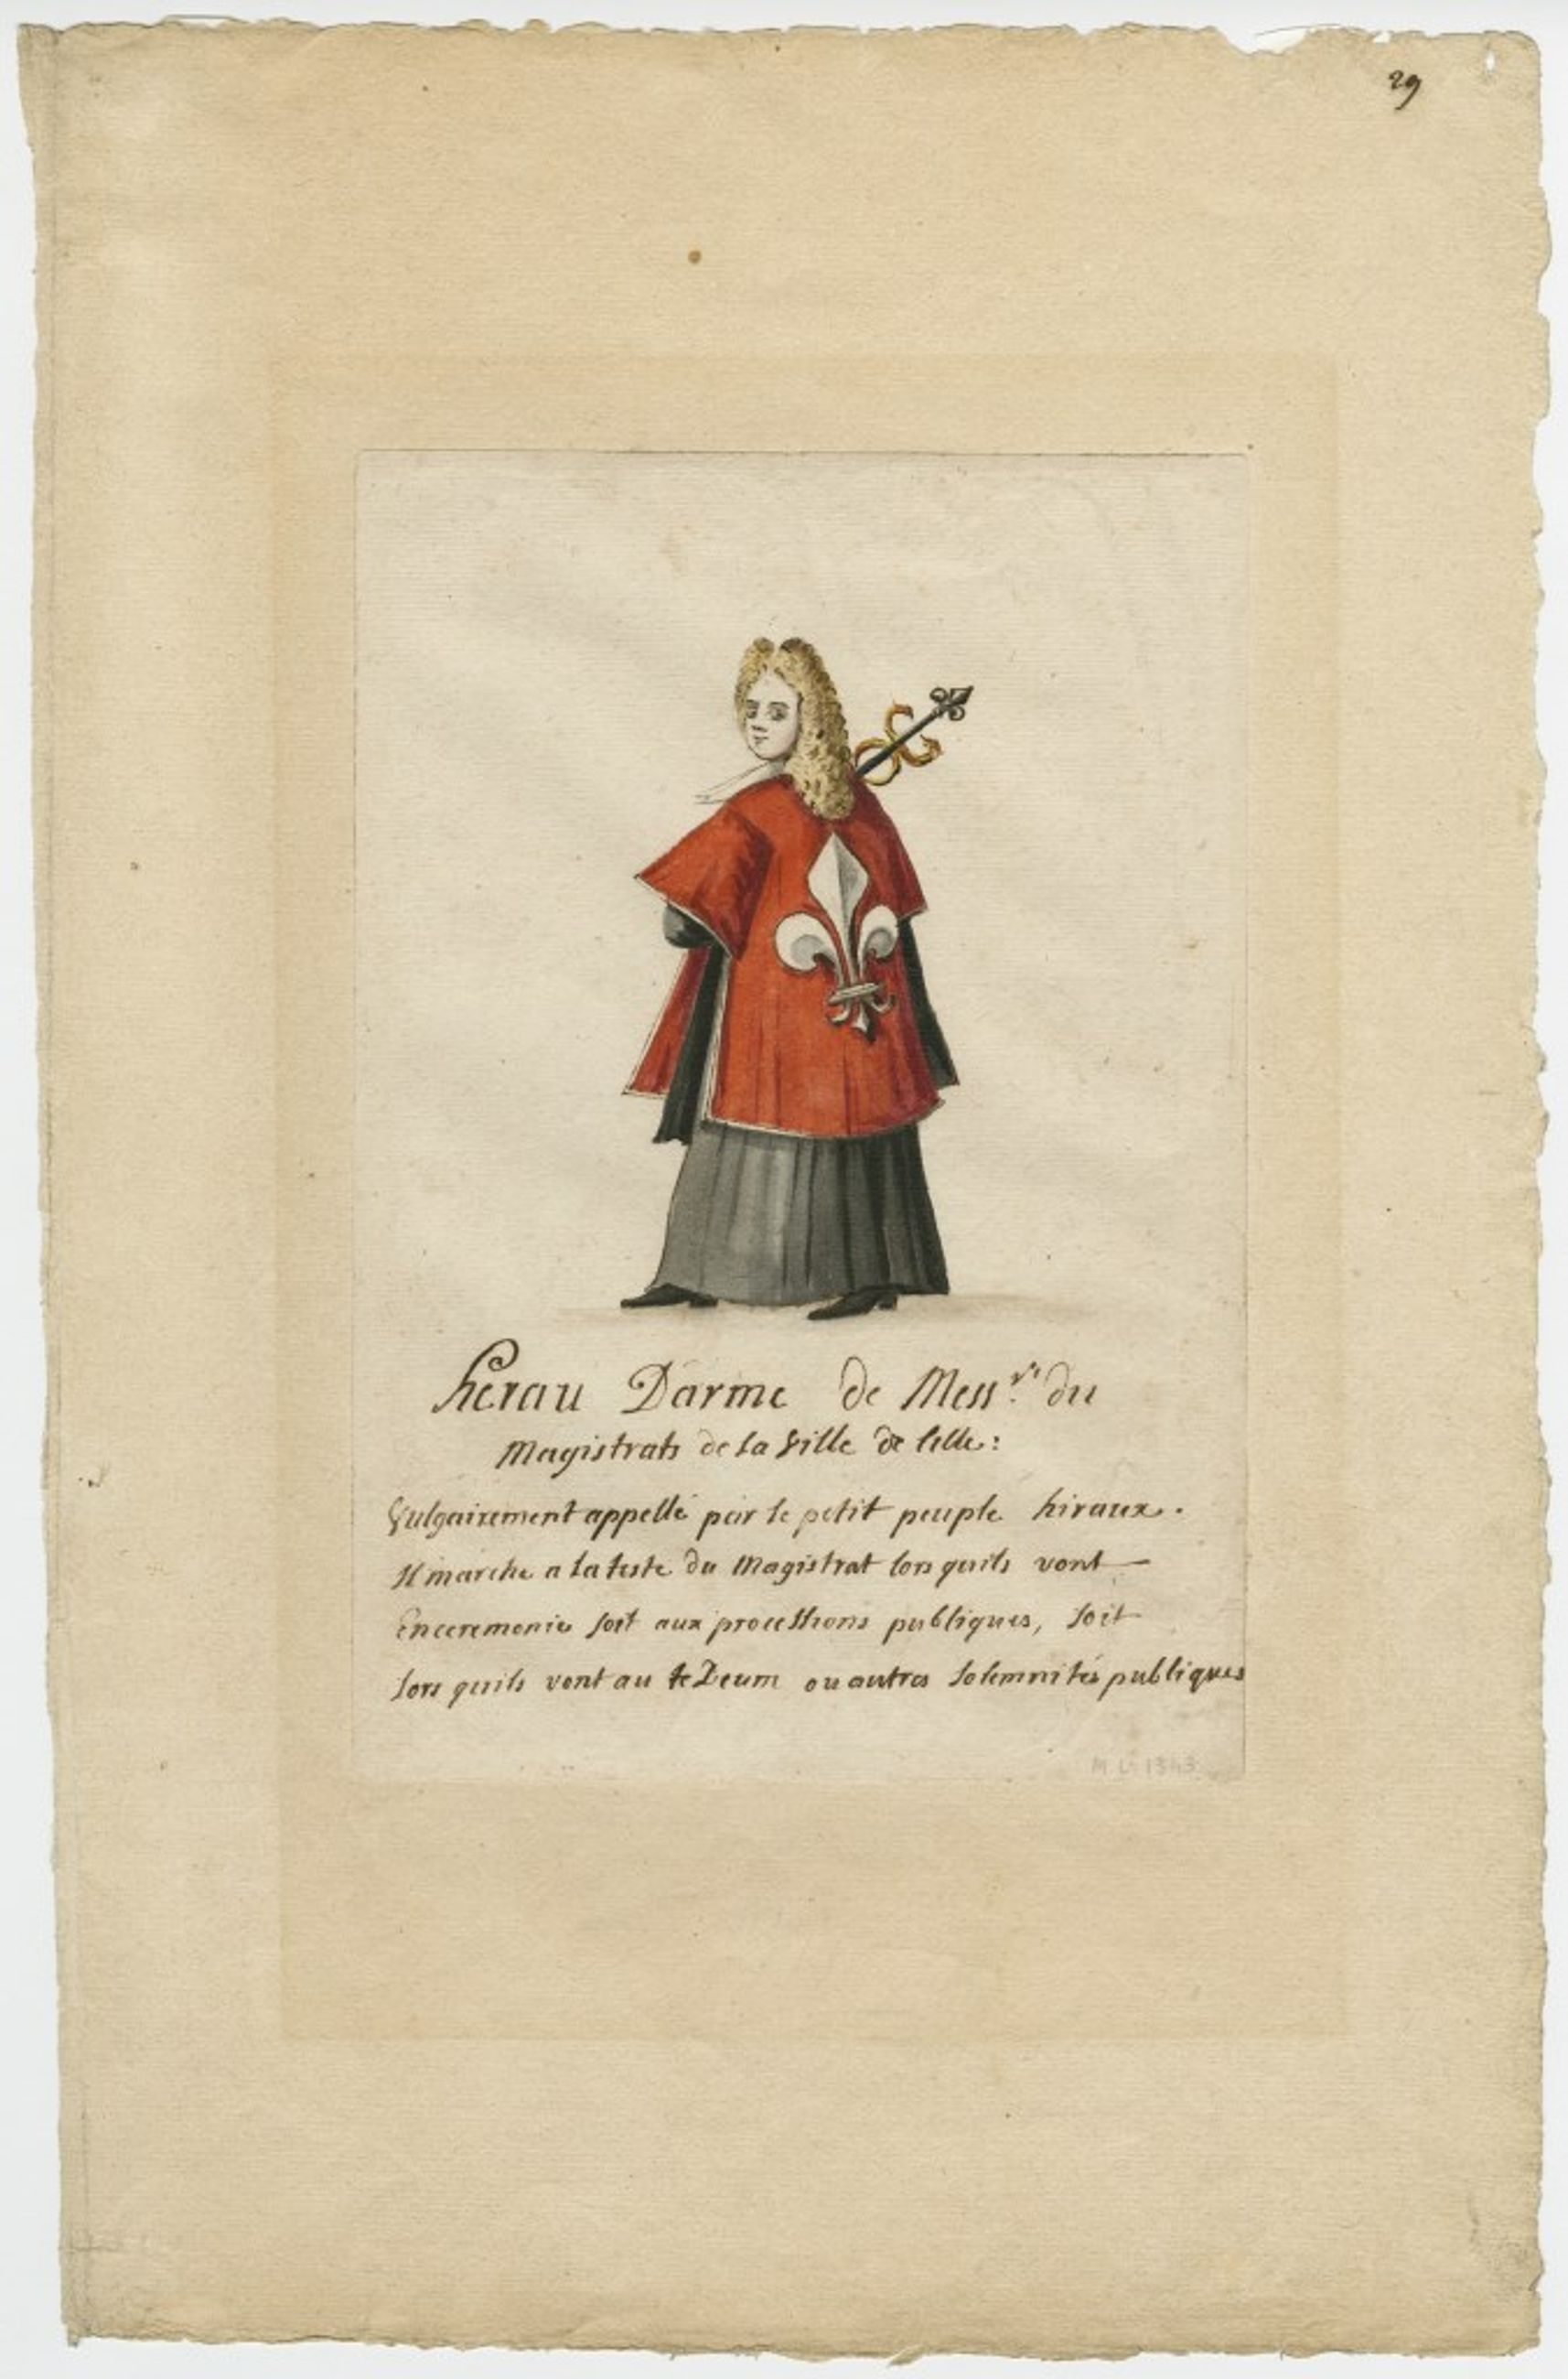 29
herau Darme de Mess.rs du
Magistrats de la Ville de lille:
Vulgairement appellé par le petit peuple hiraux.
Il marche a la teste du Magistrat lors quils vont
Enceremonie soit aux processions publiques, soit
lors quils vont au te Deum ou autres solemnités publiques